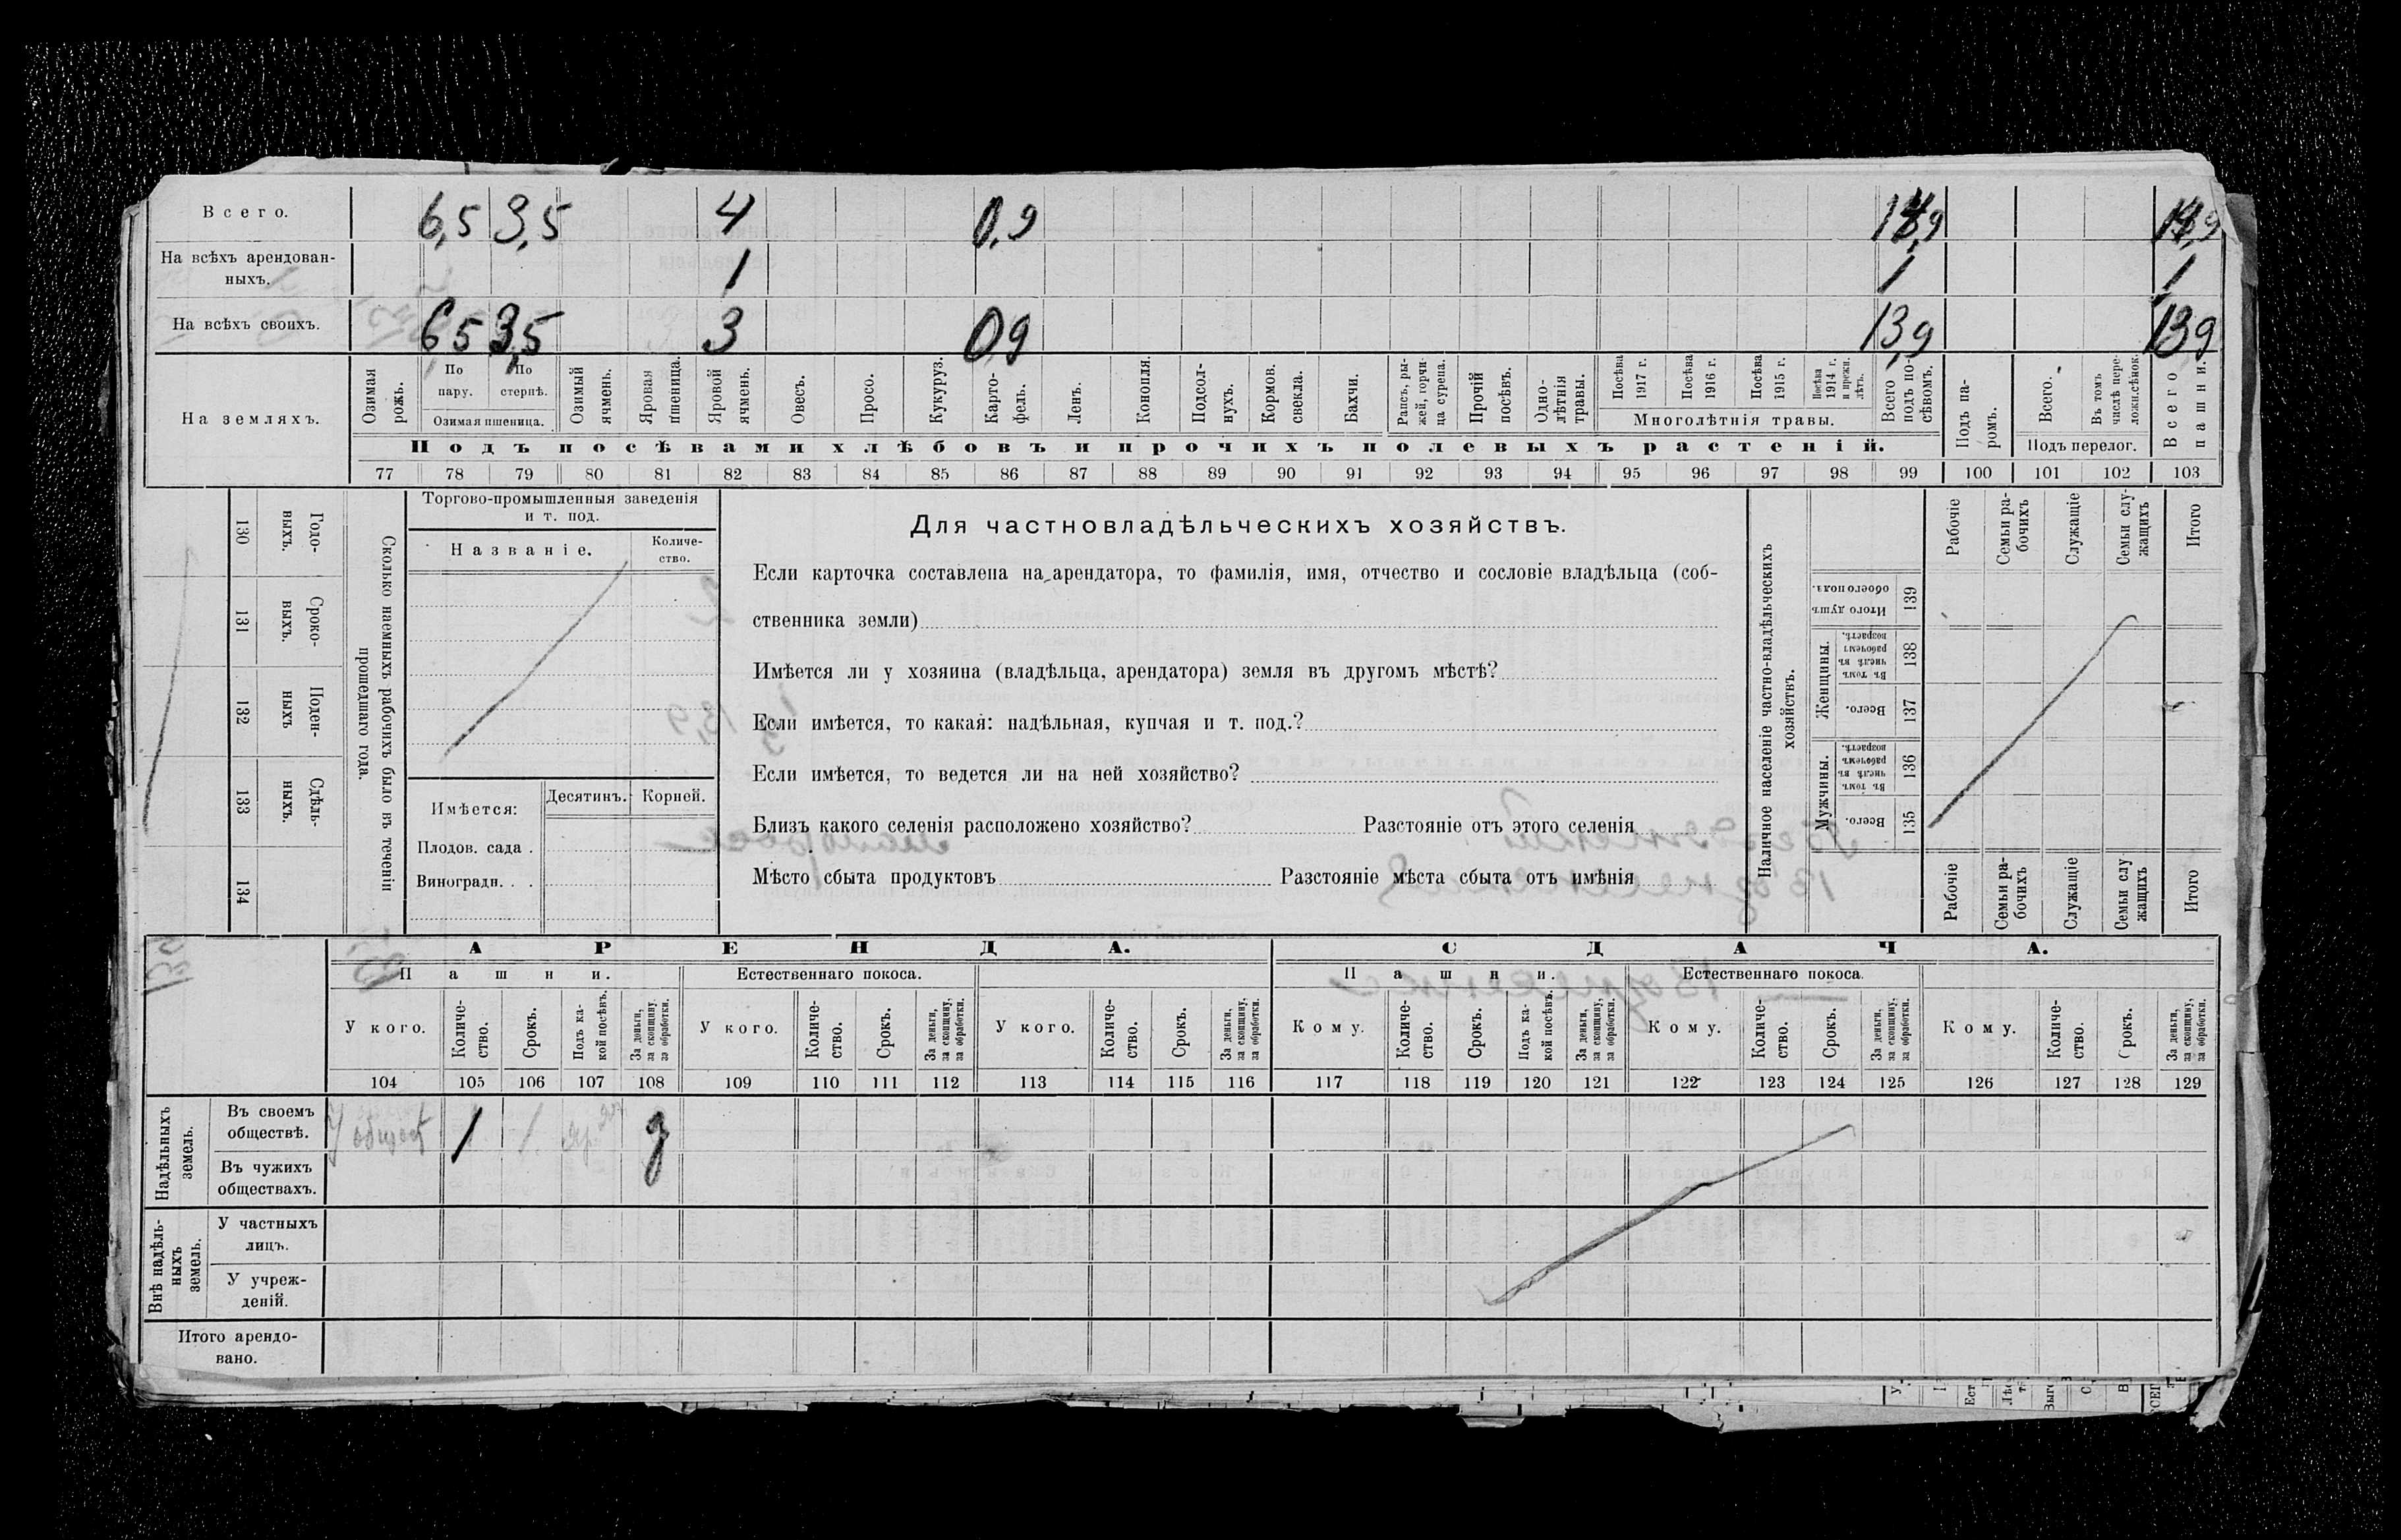 Всего. 6,5 3,5 4 0,9 14,9 14,9
На всѣхъ арендован-
ныхъ. 1 1 1
На всѣхъ своихъ. 6 5 3,5 3 0 9 13,9 13 9
На земляхъ.
Озимая рожь.
По пару.
По стернѣ.
Озимая пшеница.
Озимый ячмень.
Яровая пшеница.
Яровой ячмень.
Овесъ.
Просо.
Кукуруз.
Карто-
фель.
Ленъ.
Конопля.
Подсол-
нухъ.
Кормов. свекла.
Бахчи.
Рапсъ, ры-
жей, горчи-
ца сурепа.
Прочій посѣвъ.
Одно-
лѣтнія травы.
Посѣва 1917 г.
Посѣва 1916 г.
Посѣва 1915 г.
Посѣва 1914 г. и прежн. лѣтъ.
Многолѣтнія травы.
Всего подъ по-
сѣвомъ.
Подъ па-
ромъ.
Всего.
Въ томъ числѣ пере-
ложн.сѣнок.
Подъ перелог.
Всего пашни.
Подъ посѣвами хлѣбовъ и прочихъ полевыхъ растеній.
77 78 79 80 81 82 83 84 85 86 87 88 89 90 91 92 93 94 95 96 97 98 99 100 101 102 103
130 Годо-
выхъ.
131 Сроко-
выхъ.
132 Поден-
ныхъ
133 Сдѣль-
ныхъ.
134
Сколько наемныхъ рабочихъ было въ теченіи
прошедшаго года.
Торгово-промышленныя заведенія
и т. под.
Названіе.
Количе-
ство.
Имѣется: Десятинъ. Корней.
Плодов. сада .
Виноградн. . .
Для частновладѣльческихъ хозяйствъ.
Если карточка составлена на арендатора, то фамилія, имя, отчество и сословіе владѣльца (соб-
ственника земли)
Имѣется ли у хозяина (владѣльца, арендатора) земля въ другомъ мѣстѣ?
Если имѣется, то какая: надѣльная, купчая и т. под.?
Если имѣется, то ведется ли на ней хозяйство?
Близъ какого селенія расположено хозяйство? Разстояніе отъ этого селенія
Мѣсто сбыта продуктовъ Разстояніе мѣста сбыта отъ имѣнія
Наличное населеніе частно-владѣльческихъ
хозяйствъ.
Рабочіе
Семьи ра-
бочихъ
Служащіе
Семьи слу-
жащихъ
Итого
Итого душъ обоего пола. 139
Женщины.
Въ томъ числѣ въ рабочемъ возрастѣ. 138
Всего. 137
Мужчины.
Въ томъ числѣ въ рабочемъ возрастѣ. 136
Всего. 135
Рабочіе
Семьи ра-
бочихъ
Служащіе
Семьи слу
жащихъ
Итого
АРЕНДА. СДАЧА.
Пашни. Естественнаго покоса. Пашни. Естественнаго покоса.
У кого.
Количе-
ство.
Срокъ.
Подъ ка-
кой посѣвъ.
За деньги,
за скопщину,
за обработки.
У кого.
Количе-
ство.
Срокъ.
За деньги,
за скопщину,
за обработки.
У кого.
Количе-
ство.
Срокъ.
За деньги,
за скопщину,
за обработки.
Кому.
Количе-
ство.
Срокъ.
Подъ ка-
кой посѣвъ.
За деньги,
за скопщину,
за обработки.
Кому.
Количе-
ство.
Срокъ.
За деньги,
за скопщину,
за обработки.
Кому.
Количе-
ство.
Срокъ.
За деньги,
за скопщину,
за обработки.
104 105 106 107 108 109 110 111 112 113 114 115 116 117 118 119 120 121 122 123 124 125 126 127 128 129
Надѣльныхъ
земель.
Въ своемъ
обществѣ. У общест 1 1. д
Въ чужихъ
обществахъ.
Внѣ надѣль-
ныхъ
земель.
У частныхъ
лицъ.
У учреж-
деній.
Итого арендо-
вано.